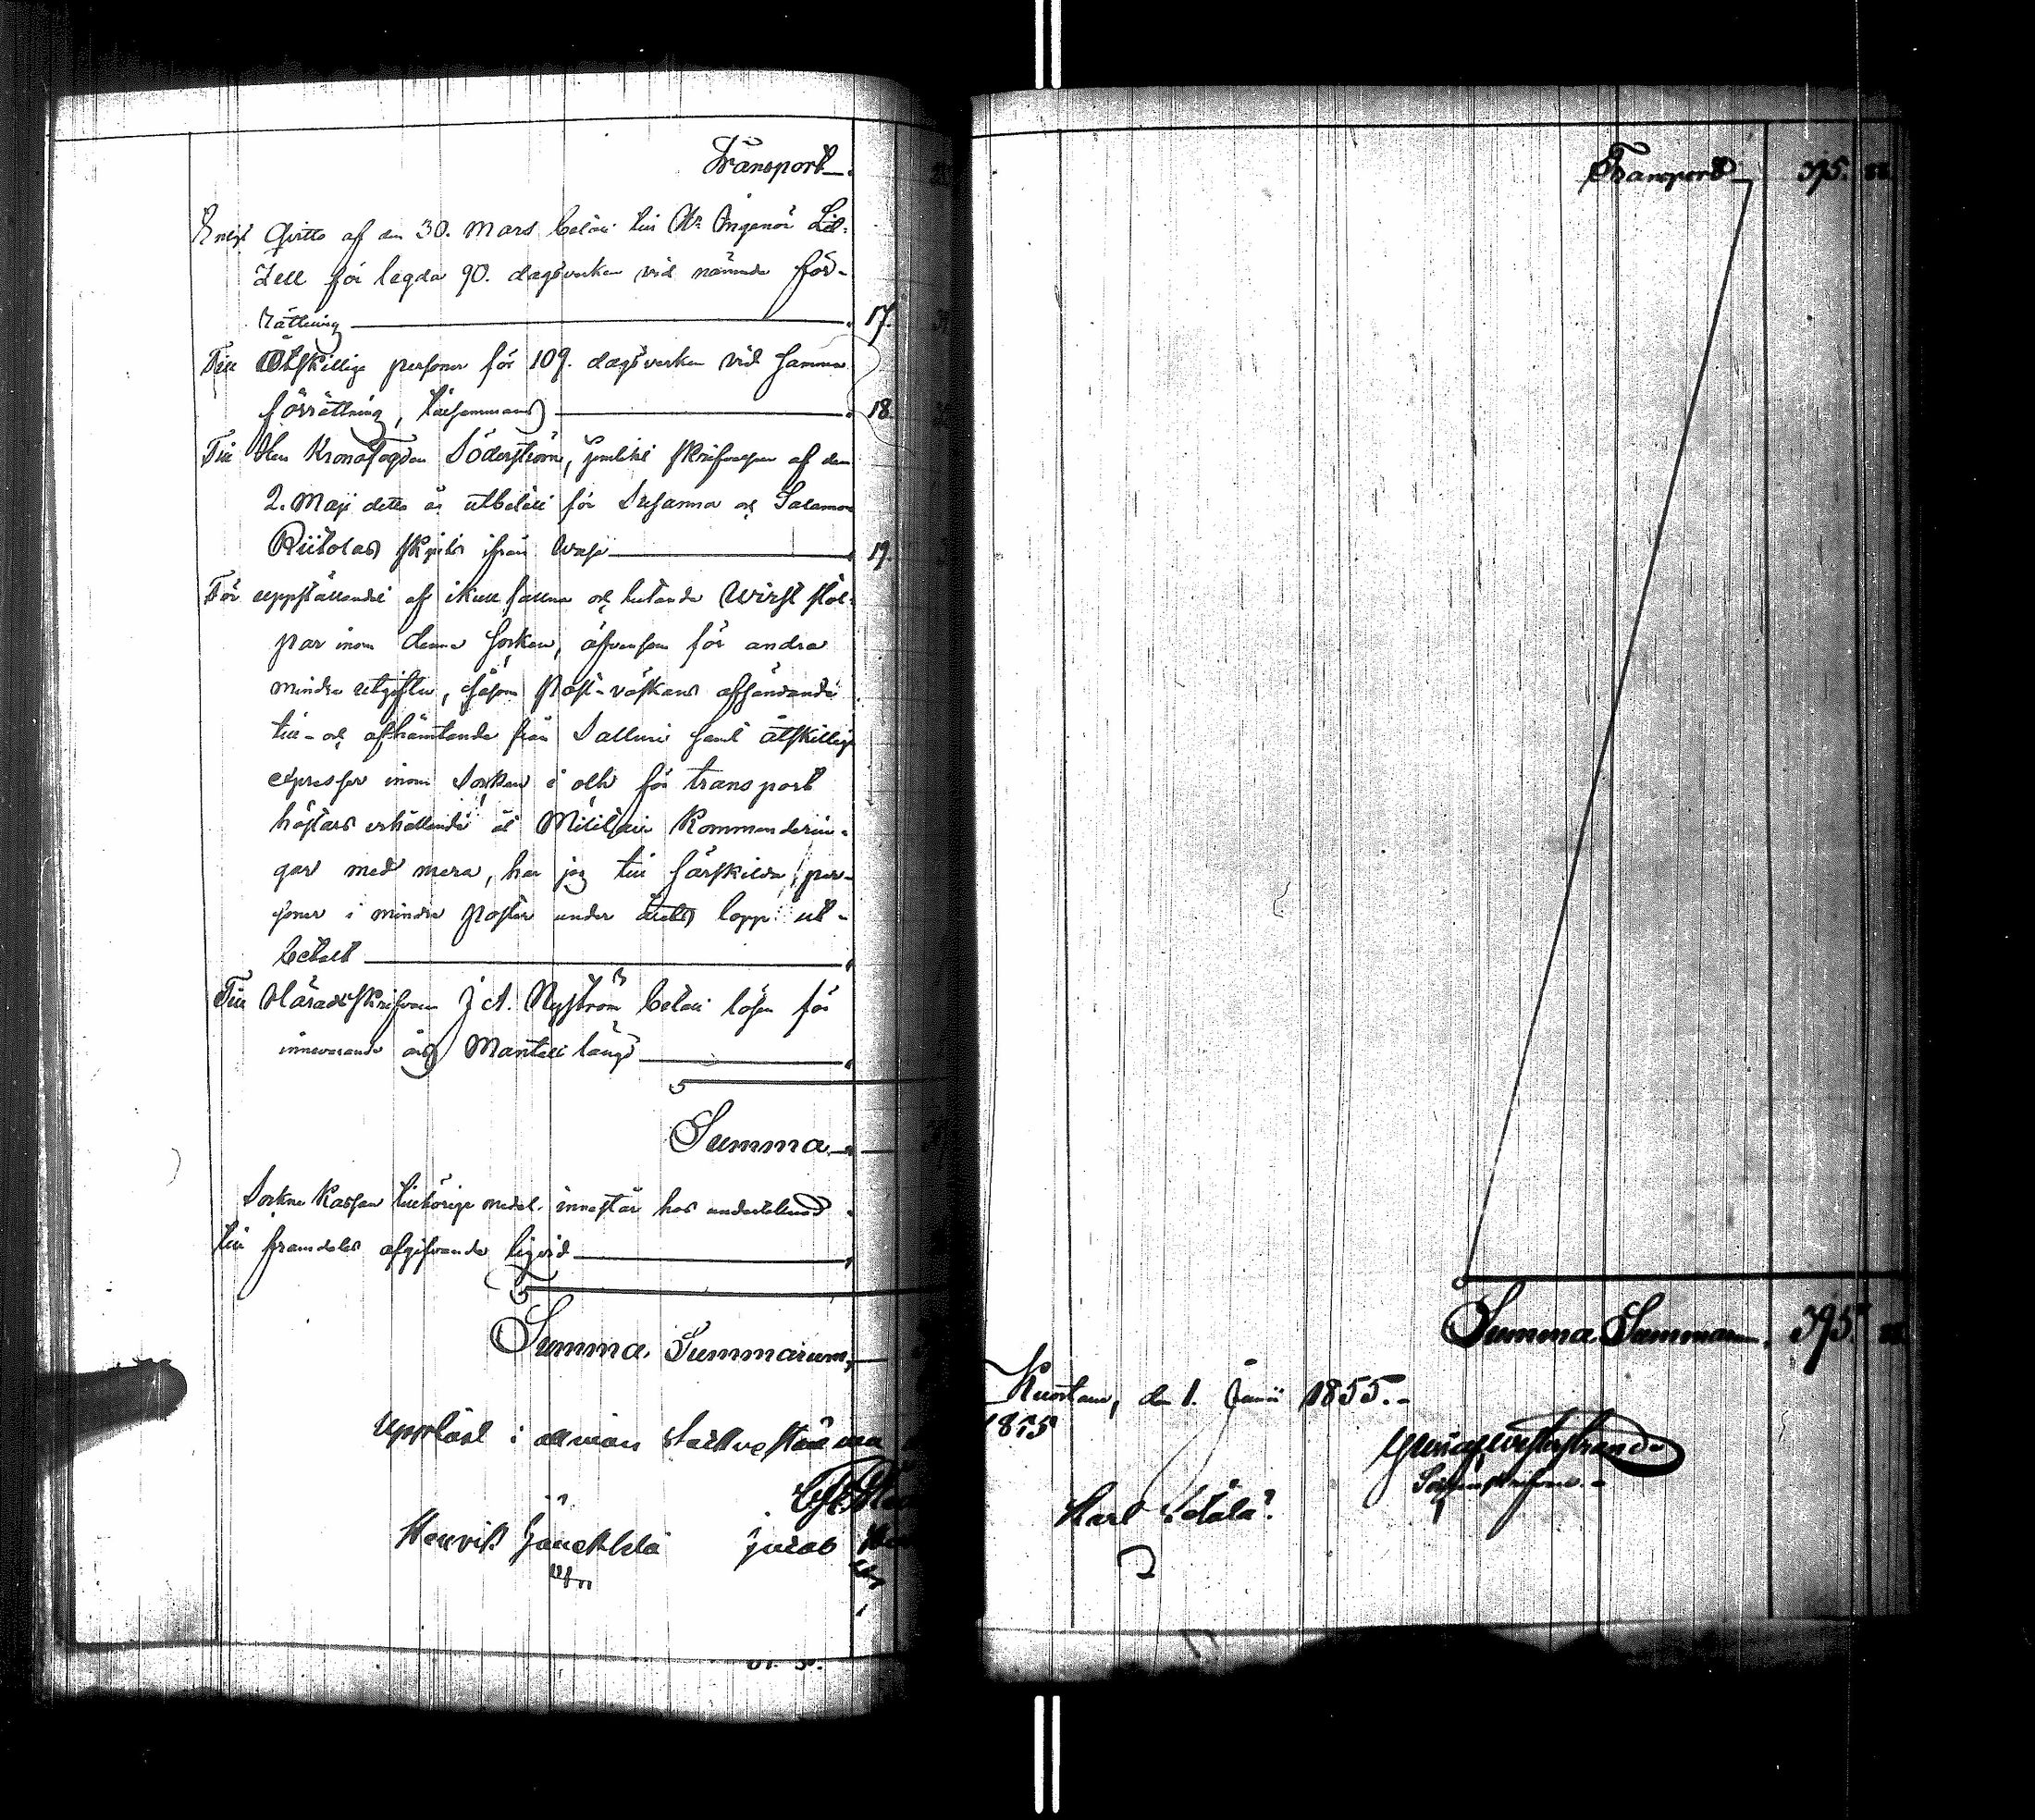 Transport
Enligt Qvitto af den 30. Mars betalt till Hr Ingenör Lil-
Zell för legda 90. dagsverken vid nämnde för-
rättning 17.
Till Åtskillige personer för 109. dagsverken vid samma
förrättning, tillsammans 18.
Till Herr Kronofogden Söderström, jemlikt skrifvelsen af den
2. Maji detta år utbetalt för Susanna och Salamon
Riitolas skjuts ifrån Wasa 19.
För uppställandet af ikull fallna och lutande Wirst stol-
par inom denna Socken, äfvensom för andra
mindre utgifter, såsom Post-väskans afsändande
till- och afhämtande från Salluri samt åtskillige
expresser inom Socken i och för transport
hästars erhållande åt Militair Kommenderin-
gar med mera, har jag till särskilda per-
soner i mindre Poster under årets lopp ut-
betalt
Till Häradsskrifvaren J A. Nyström betalt lösen för
innevarande års Mantals längd
Summa
Sockne Kassan tillhörige medel innestår hos undertecknad
till framdeles afgifvande liqvid
Summa Summarum,
Uppläst i allmän Sockne stämma
Henrik jacob
Transport 395.
Summa Summarum, 395.
Kuortane, den 1. Junii 1855.
1855
Sockneskrifvare.
Karl